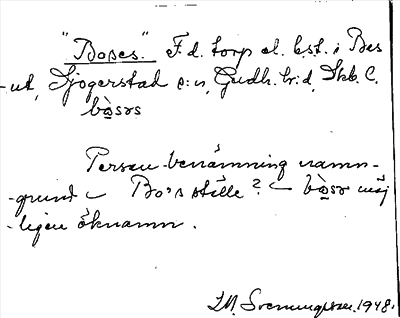 "Boses." F. d. torp el. bst. i Bes
-ut, Sjogerstad s:n, Gudh. hr:d, Skb. C.
bòsəs
Person-benämning namn-
-grund ~ Bo's ställe? ~ bòsə möj
-ligen öknamn.
I. M. Svenungsson. 1948.